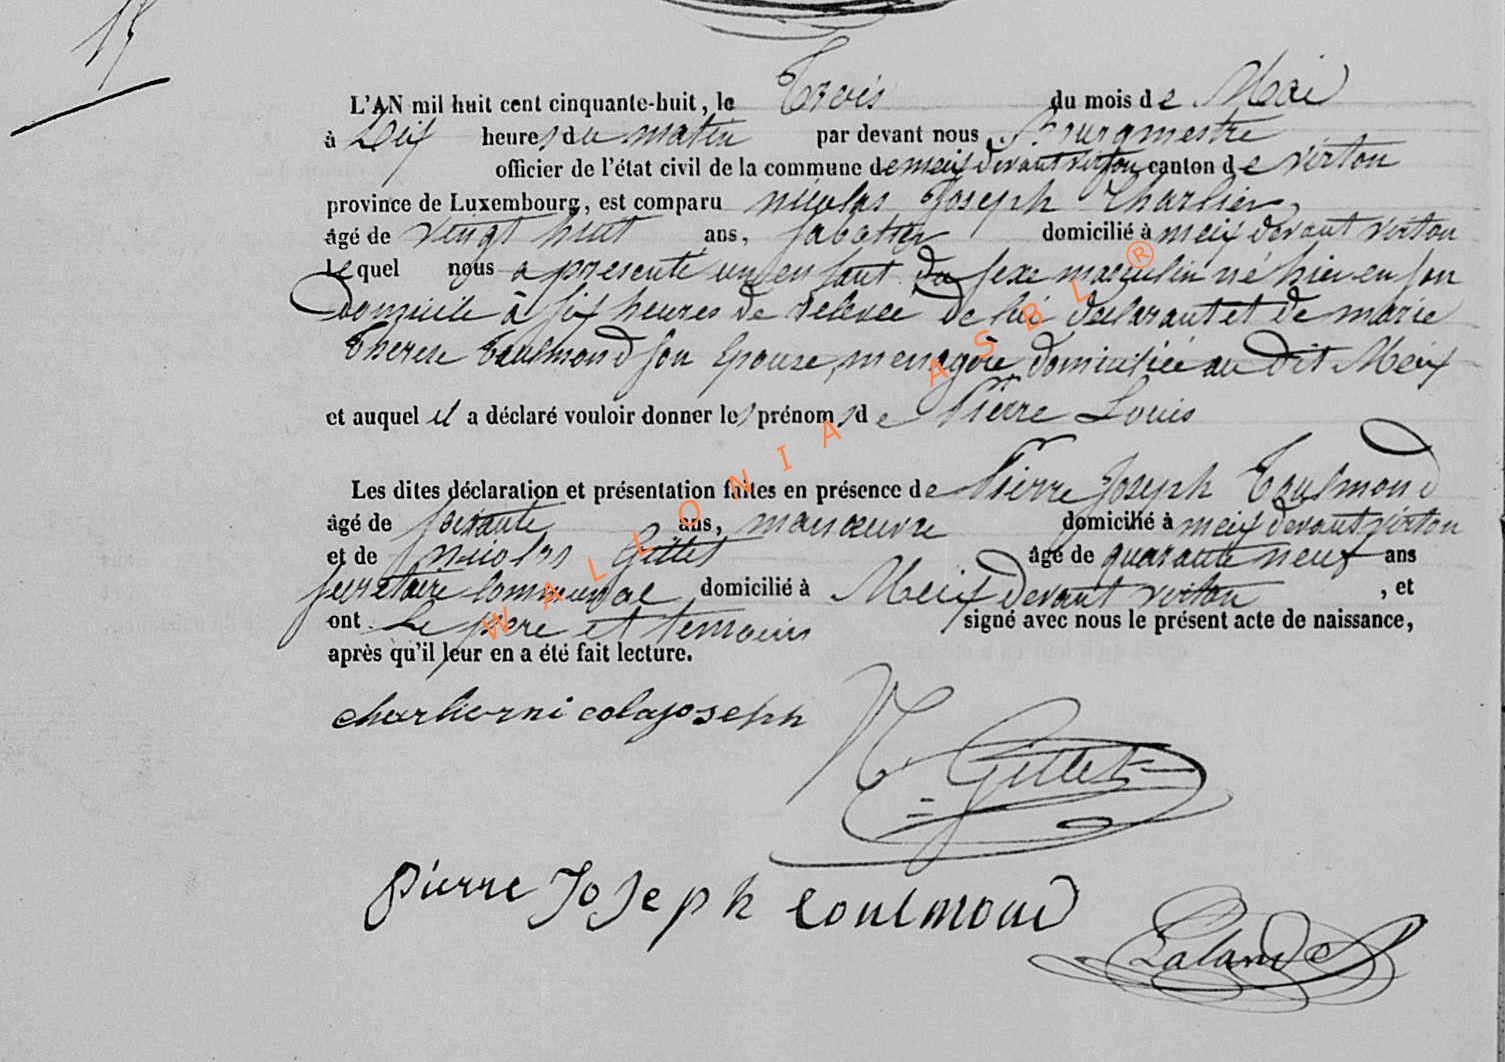 15
L'AN mil huit cent cinquante-huit, le Trois du mois de Mai
à Dix heures du matin par devant nous, Bourgmestre
officier de l'état civil de la commune de meix devant virton canton de virton
province de Luxembourg, est comparu nicolas Joseph Charlier,
âgé de vingt huit ans, sabotier domicilié à meix devant virton
lequel nous a presenté un enfant du sexe masculin né hier en son
Domicile à six heures de relevée de lui declarant et de marie
Therese Toulmond son Epouse, menagère domiciliée au dit Meix
et auquel il a déclaré vouloir donner les prénoms de Pierre Louis
Les dites déclaration et présentation faites en présence de Pierre Joseph Toulmond
âgé de soixante ans, manoeuvre domicilié à meix devant virton
et de nicolas Gillet âgé de quarante neuf ans
secretaire Communal domicilié à Meix devant virton, et
ont Le pere et temoins signé avec nous le présent acte de naissance,
après qu'il leur en a été fait lecture.
charlier nicolas joseph
N. Gillet
pierre Joseph toulmond
Lalande
WALLONIA ASBL ®